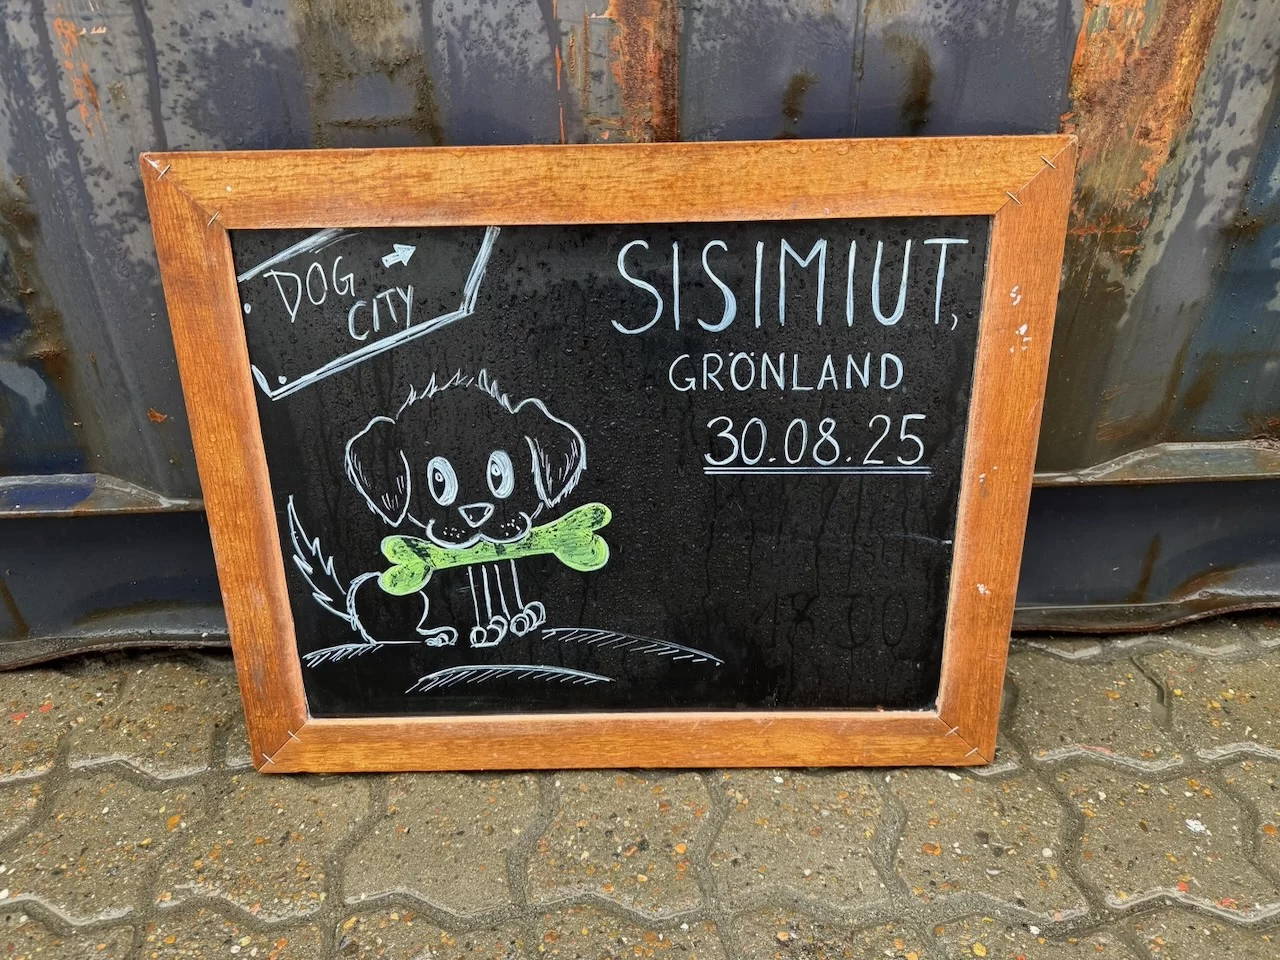 DOG
CITY
SISIMIUT,
GRÖNLAND
30.08.25